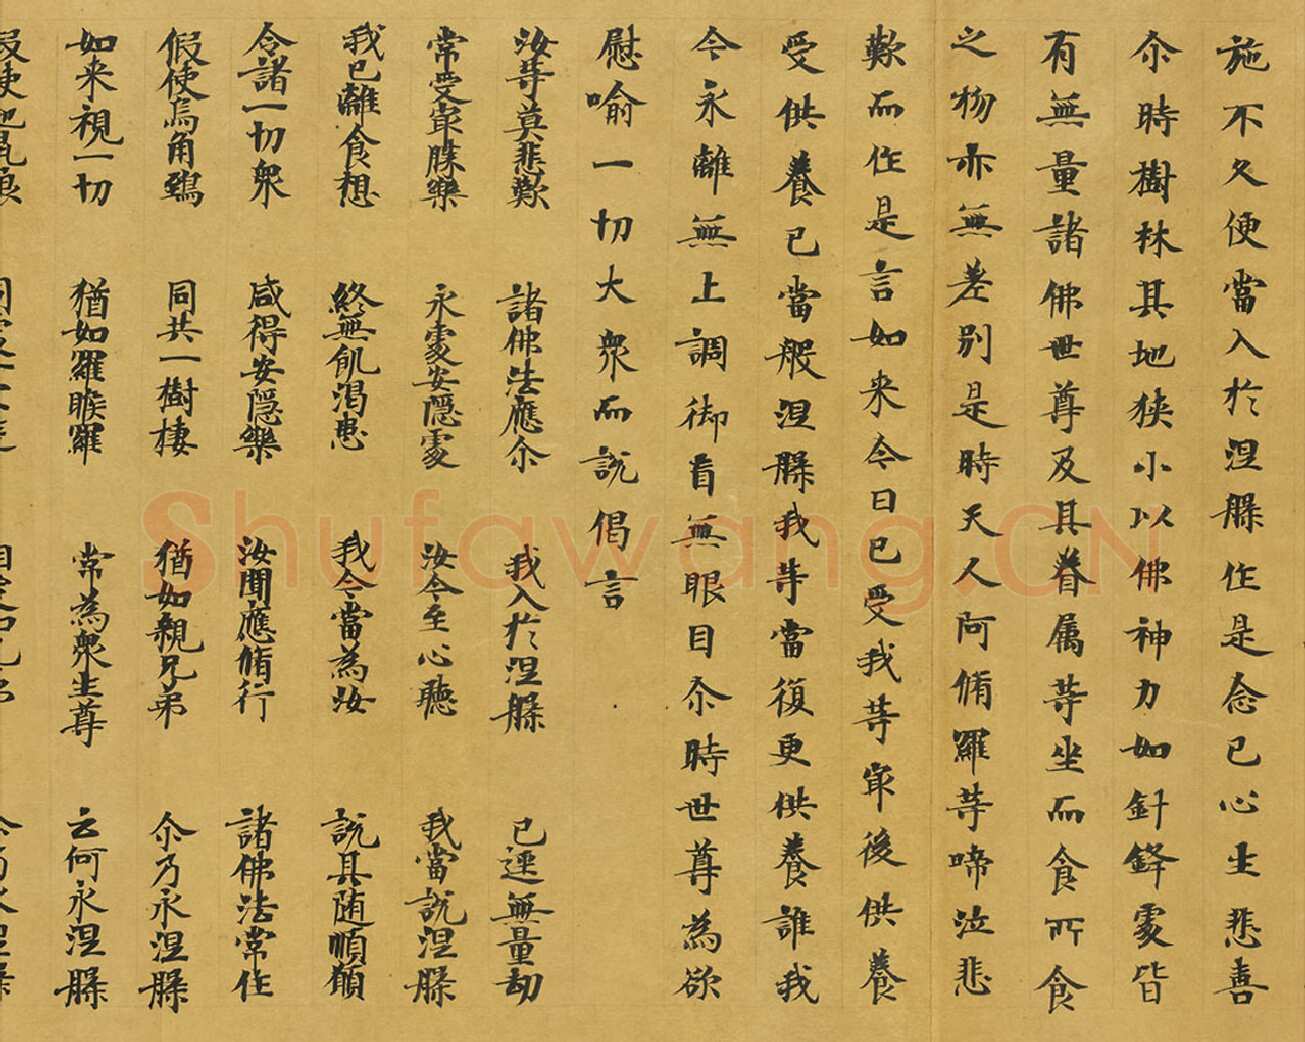 施不久便當入於涅槃作是念已心生悲喜
尒時樹林其地狹小以佛神力如針鋒處皆
有無量諸佛世尊及其眷属等坐而食所食
之物亦無差別是時天人阿脩羅等啼泣悲
歎而作是言如来今日已受我等冣後供養
受供養已當般涅槃我等當復更供養誰我
今永離無上調御盲無眼目尒時世尊為欲
慰喻一切大衆而說偈言
汝等莫悲歎 諸佛法應尒 我入於涅槃 已逕無量劫
常受冣勝樂 永處安隱處 汝今至心聽 我當說涅槃
我已離食想 終無飢渴患 我今當為汝 說其随順願
令諸一切衆 咸得安隱樂 汝聞應脩行 諸佛法常住
假使烏角鵄 同共一樹棲 猶如親兄弟 尒乃永涅槃
如来視一切 猶如羅睺羅 常為衆生尊 云何永涅槃
Shufawang.CN